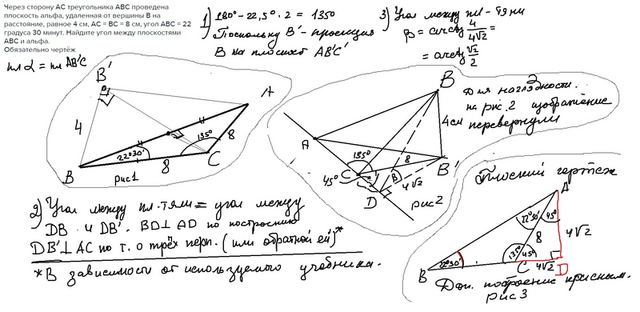 Через сторону АС треугольника АВС проведена
плоскость альфа, удаленная от вершины В на
расстояние, равное 4 см, АС = ВС = 8 см, угол АВС = 22
градуса 30 минут. Найдите угол между плоскостями
АВС и альфа.
Обязательно чертёж
пл α = пл AB'C
1) 180° - 22,5° · 2 = 135°
Поскольку B' - проекция
B на плоскост AB'C'
3) Угол между пл-тями
β = arctg 4/4√2 =
= arctg √2/2
B'
A
4
4
135°
8
22°30'
C
B
8
рис1
B
A
4см
135°
8
B'
45°
C
β
D
4√2
рис2
Для наглядности
на рис.2 изображение
перевернули
2) Угол между пл.тями = углу между
DB и DB'. BD⊥AD по построению
DB'⊥AC по т. о трёх перп. (или обратной ей)*
*В зависимости от используемого учебника.
Плоский чертеж
A
22°30'
45°
8
4√2
22°30'
135°
45°
B
C
4√2
D
Доп. построение красным.
рис3